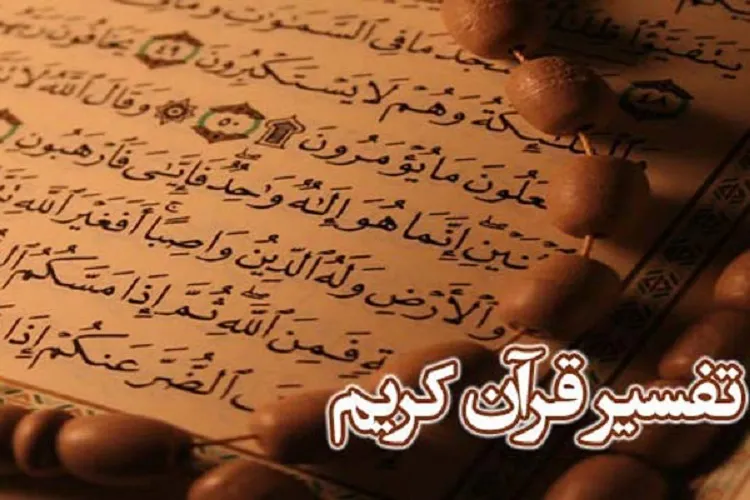 يَتَفَيَّؤُا۟
٤٨ يَسْجُدُ مَا فِى ٱلسَّمَٰوَٰتِ وَمَا
وَٱلْمَلَٰٓئِكَةُ وَهُمْ لَا يَسْتَكْبِرُونَ ٤٩ يَخَافُونَ رَبَّهُم
يَفْعَلُونَ مَا يُؤْمَرُونَ ۩ ٥٠ ۞ وَقَالَ ٱللَّهُ لَا
إِنَّمَا هُوَ إِلَٰهٌ وَٰحِدٌ فَإِيَّٰىَ فَٱرْهَبُونِ
وَٱلْأَرْضِ وَلَهُ ٱلدِّينُ وَاصِبًا أَفَغَيْرَ ٱللَّهِ
فَمِنَ ٱللَّهِ ثُمَّ إِذَا مَسَّكُمُ
ٱلضُّرَّ عَنكُمْ إِذَا
تفسیر قرآن کریم